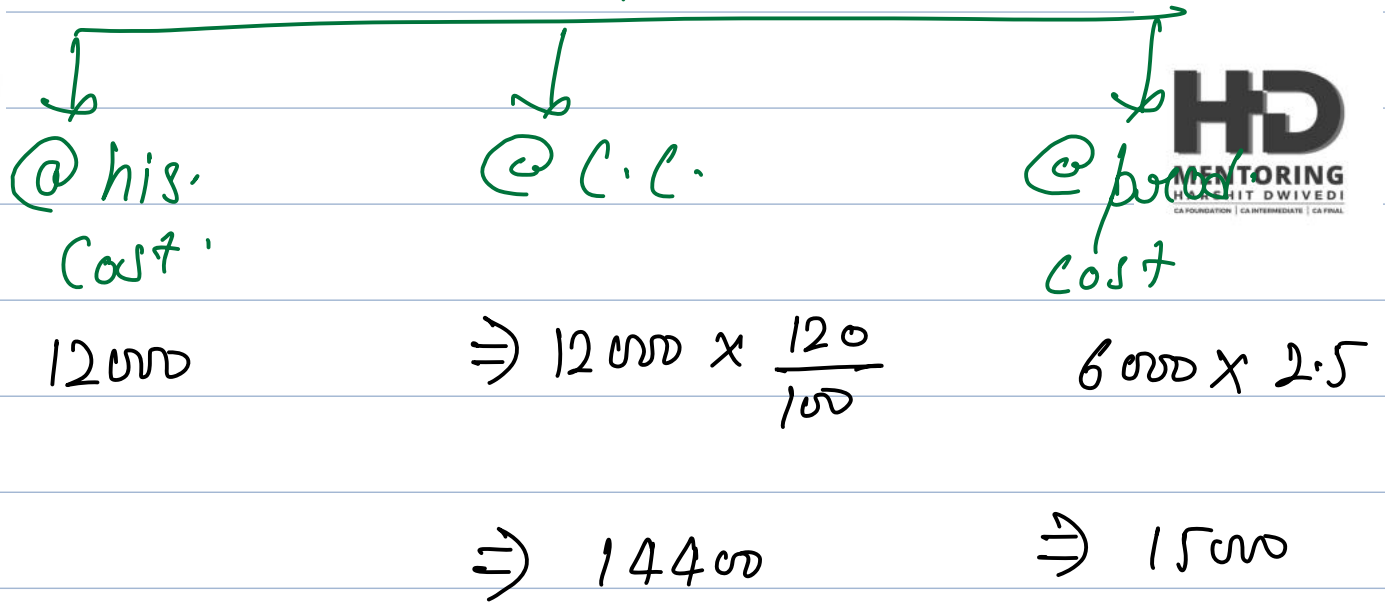 @ his. @ C.C. @ prod.
HD
MENTORING
HARSHIT DWIVEDI
CA FOUNDATION | CA INTERMEDIATE | CA FINAL
Cost. cost
12000 ⇒ 12000 × 120/100 6000 × 2.5
⇒ 14400 ⇒ 15000